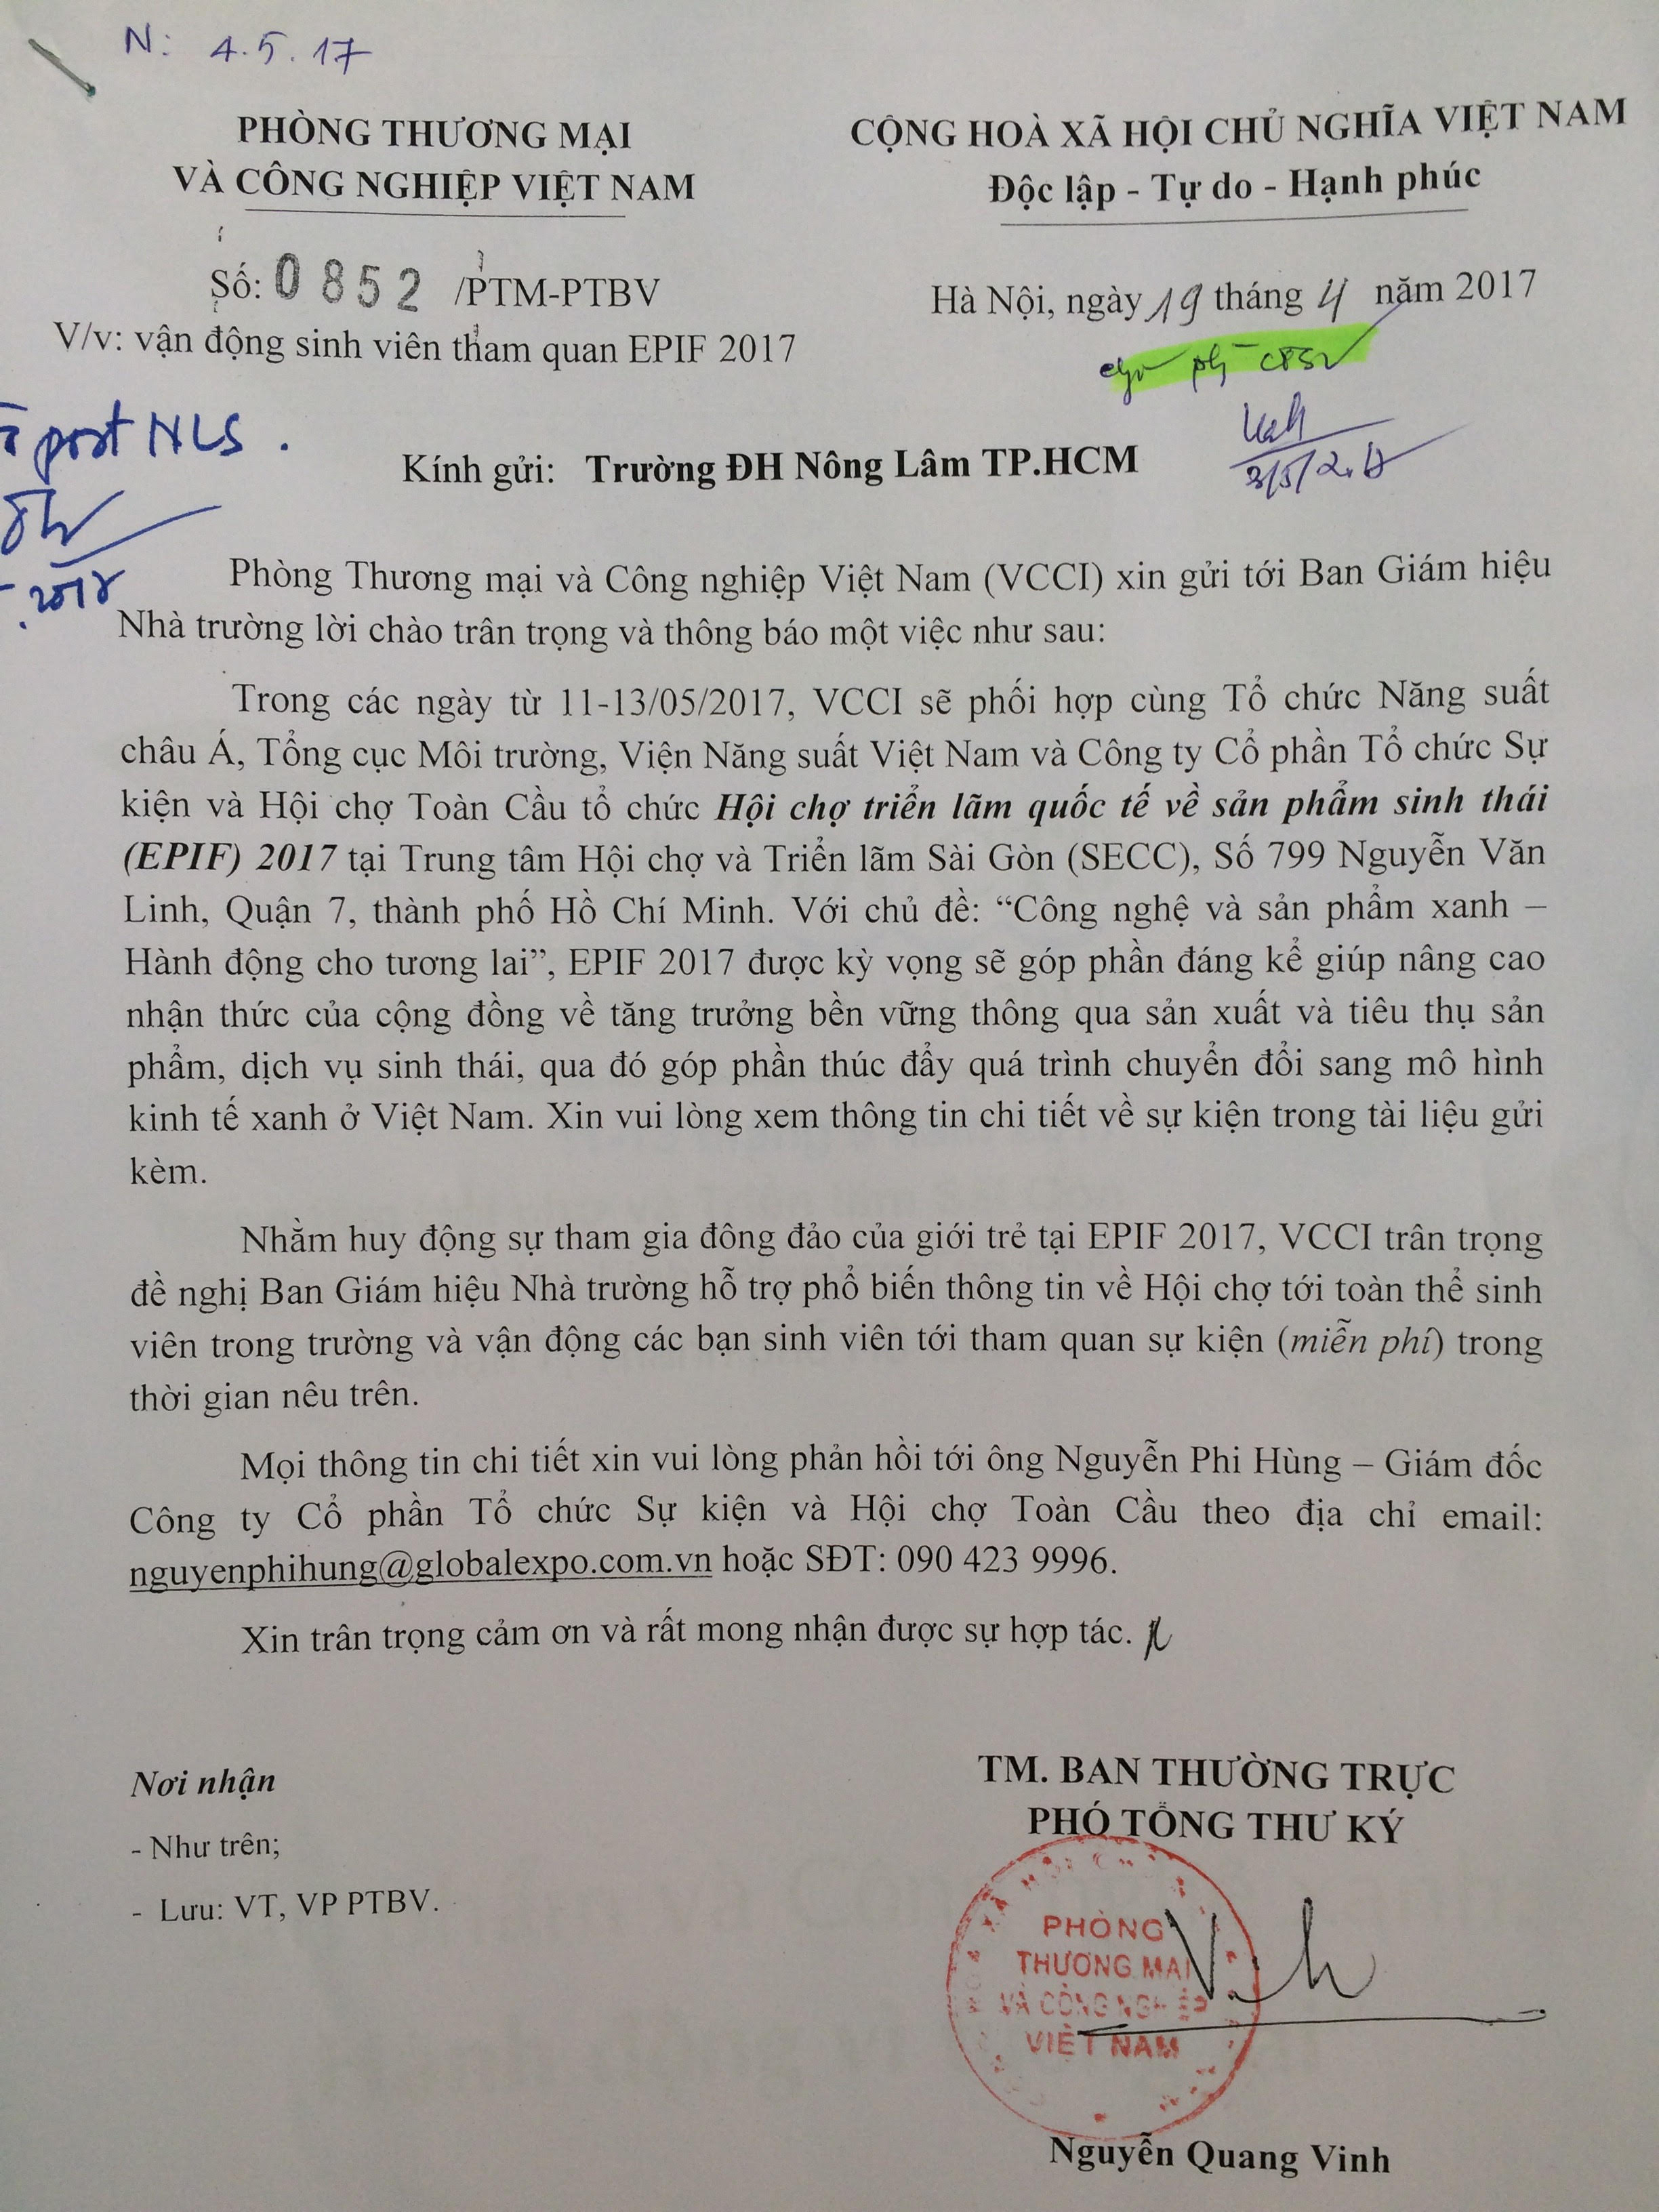 N: 4.5.17
PHÒNG THƯƠNG MẠI
VÀ CÔNG NGHIỆP VIỆT NAM
CỘNG HOÀ XÃ HỘI CHỦ NGHĨA VIỆT NAM
Độc lập - Tự do - Hạnh phúc
Số: 0852 /PTM-PTBV
V/v: vận động sinh viên tham quan EPIF 2017
Hà Nội, ngày 19 tháng 4 năm 2017
post NLS.
Kính gửi: Trường ĐH Nông Lâm TP.HCM
Phòng Thương mại và Công nghiệp Việt Nam (VCCI) xin gửi tới Ban Giám hiệu
Nhà trường lời chào trân trọng và thông báo một việc như sau:
Trong các ngày từ 11-13/05/2017, VCCI sẽ phối hợp cùng Tổ chức Năng suất
châu Á, Tổng cục Môi trường, Viện Năng suất Việt Nam và Công ty Cổ phần Tổ chức Sự
kiện và Hội chợ Toàn Cầu tổ chức Hội chợ triển lãm quốc tế về sản phẩm sinh thái
(EPIF) 2017 tại Trung tâm Hội chợ và Triển lãm Sài Gòn (SECC), Số 799 Nguyễn Văn
Linh, Quận 7, thành phố Hồ Chí Minh. Với chủ đề: “Công nghệ và sản phẩm xanh –
Hành động cho tương lai”, EPIF 2017 được kỳ vọng sẽ góp phần đáng kể giúp nâng cao
nhận thức của cộng đồng về tăng trưởng bền vững thông qua sản xuất và tiêu thụ sản
phẩm, dịch vụ sinh thái, qua đó góp phần thúc đẩy quá trình chuyển đổi sang mô hình
kinh tế xanh ở Việt Nam. Xin vui lòng xem thông tin chi tiết về sự kiện trong tài liệu gửi
kèm.
Nhằm huy động sự tham gia đông đảo của giới trẻ tại EPIF 2017, VCCI trân trọng
đề nghị Ban Giám hiệu Nhà trường hỗ trợ phổ biến thông tin về Hội chợ tới toàn thể sinh
viên trong trường và vận động các bạn sinh viên tới tham quan sự kiện (miễn phí) trong
thời gian nêu trên.
Mọi thông tin chi tiết xin vui lòng phản hồi tới ông Nguyễn Phi Hùng – Giám đốc
Công ty Cổ phần Tổ chức Sự kiện và Hội chợ Toàn Cầu theo địa chỉ email:
nguyenphihung@globalexpo.com.vn hoặc SĐT: 090 423 9996.
Xin trân trọng cảm ơn và rất mong nhận được sự hợp tác.
Nơi nhận
- Như trên;
- Lưu: VT, VP PTBV.
TM. BAN THƯỜNG TRỰC
PHÓ TỔNG THƯ KÝ
PHÒNG
THƯƠNG MẠI
VÀ CÔNG NGHIỆP
VIỆT NAM
Nguyễn Quang Vinh